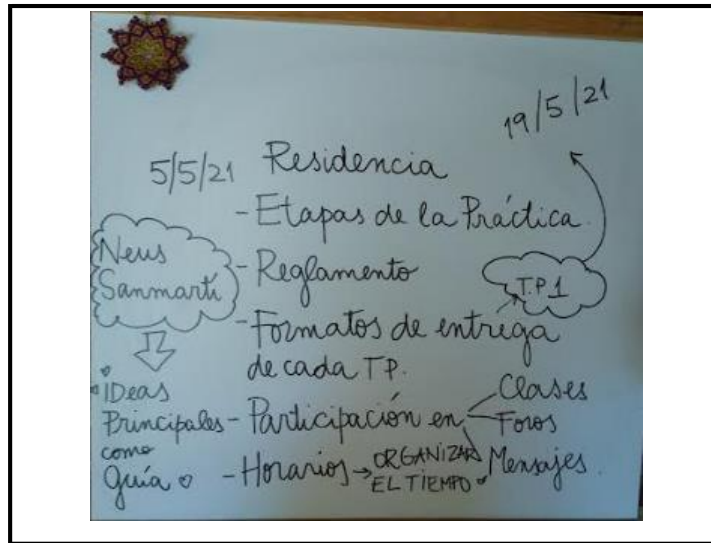 19/5/21
5/5/21 Residencia
- Etapas de la Práctica.
Neus
Sanmartí
- Reglamento
T.P.1
- Formatos de entrega
de cada T.P.
Ideas
Principales
como
guía
- Participación en
Clases
Foros
Mensajes.
- Horarios → ORGANIZAR
EL TIEMPO